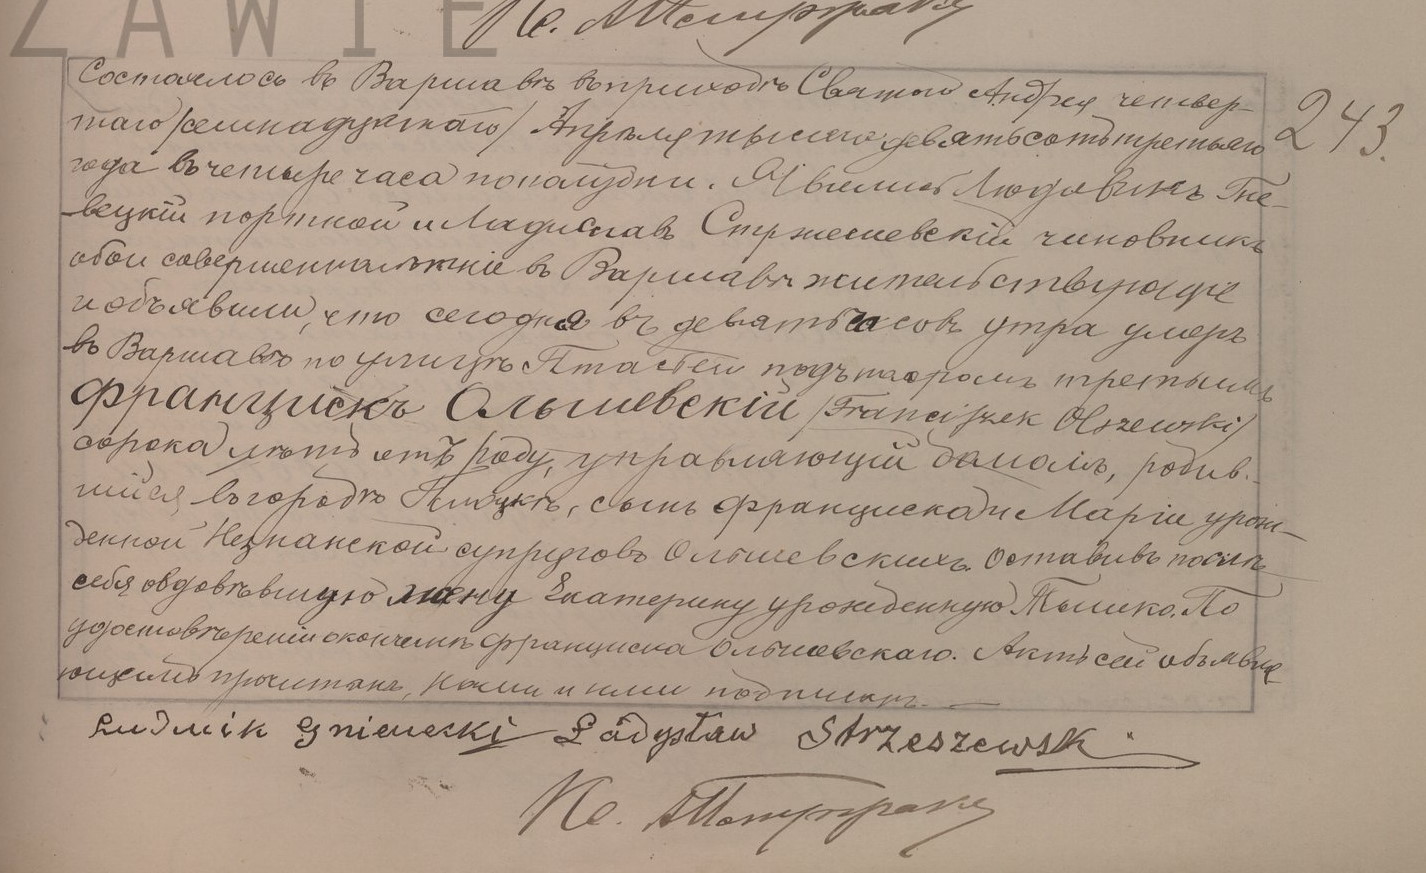 ZAWIE
Кс. 
Состоялось въ Варшавѣ въ приходѣ Святого Андрея, четвер-
таго /семнадцатаго/ Апрѣля тысяча девятьсотъ третьяго
243.
года въ четыре часа пополудни. Явились Людовикъ Гне-
вецкій портной и Ладиславъ Стржешевскій чиновникъ
обои совершеннолѣтніе въ Варшавѣ жительствующіе
и объявили, что сегодня въ девять часовъ утра умеръ
въ Варшавѣ по улицѣ Птасьей подъ номеромъ третьимъ
Францискъ Ольшевскій /Franciszek Olszewski/
сорока лѣтъ отъ роду, управляющій домомъ, родив-
шійся въ городѣ Плоцкѣ, сынъ Франциска и Маріи урож-
денной Незнанской супруговъ Ольшевскихъ. Оставивъ послѣ
себя овдовѣвшую жену Екатерину урожденную Тышко. По
удостовѣреніи о кончинѣ Франциска Ольшевскаго. Актъ сей объявля-
ющимъ прочитанъ, нами и ими подписанъ.
Ludwik Gniewecki Ładysław Strzeszewski
Кс.